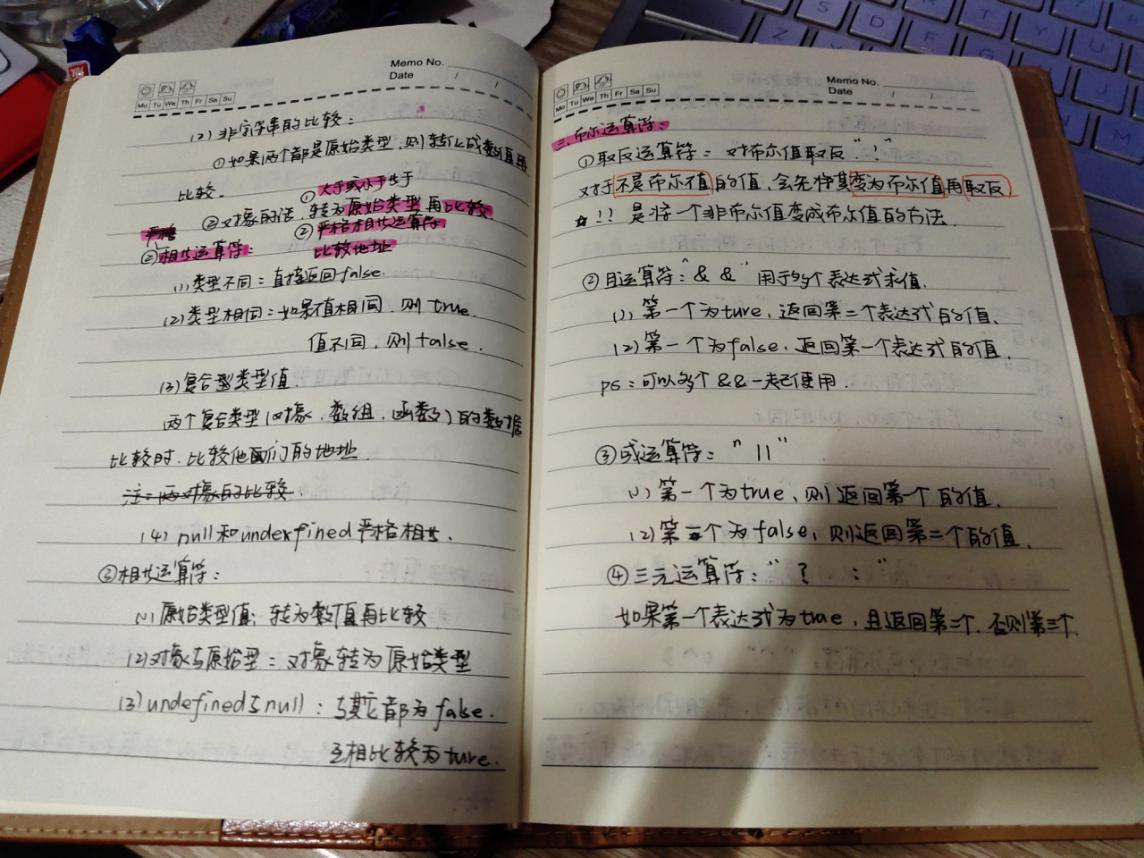 Memo No.
Date / /
Mo Tu We Th Fr Sa Su
(2) 非字符串的比较:
①如果两个都是原始类型,则转化成数值再
比较.
①大于或小于等于
②对象的话,转为原始类型再比较
②严格相等运算符
比较地址
严格
②相等运算符:
(1)类型不同:直接返回false.
(2)类型相同:如果值相同,则true.
值不同,则false.
(3)复合型类型值
两个复合类型(对象、数组、函数)的数据
比较时,比较他们的地址
注:两对象的比较
(4) null和underfined严格相等.
③相等运算符:
(1)原始类型值:转为数值再比较
(2)对象与原始型:对象转为原始类型
(3)undefined与null:与其它都为false.
互相比较为ture.
Memo No.
Date / /
Mo Tu We Th Fr Sa Su
三.布尔运算符:
①取反运算符:对布尔值取反"!"
对于不是布尔值的值,会先将其变为布尔值再取反
☆!! 是将一个非布尔值变成布尔值的方法.
②且运算符:"&&"用于多个表达式求值.
(1)第一个为ture,返回第二个表达式的值、
(2)第一个为false.返回第一个表达式的值.
ps:可以多个&&一起使用.
③或运算符:"||"
(1)第一个为true,则返回第一个的值.
(2)第一个为false,则返回第二个的值.
④三元运算符:"? :"
如果第一个表达式为true,且返回第二个.否则第三个